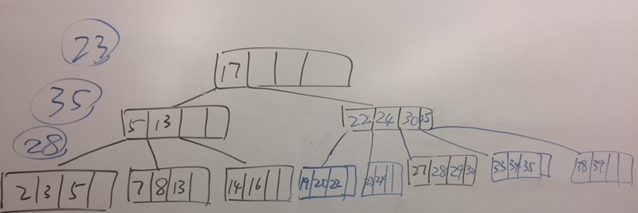 23
17
35
5 13
22 24 30 35
28
2 3 5
7 8 13
14 16
19 20 22
23 24
27 28 29 30
33 34 35
38 39